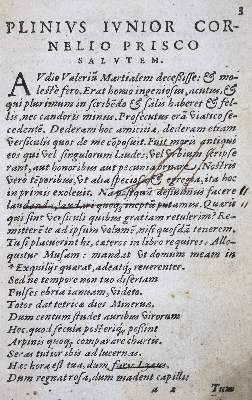 3
PLINIVS IVNIOR COR-
NELIO PRISCO
SALVTEM.
AVdio Valeriũ Martialem decessisse: & mo-
lestè fero. Erat homo ingeniosus, acutus, &
qui plurimum in scribẽdo & salis haberet & fel-
lis, nec candoris minus. Prosecutus erã viatico se-
cedentẽ. Dederam hoc amicitiæ, dederam etiam
versiculis quos de me cõposuit. Fuit moris antiqui
eos qui vel singulorum laudes, vel vrbium scripse
rant, aut honoribus aut pecunia Nostris
verò tẽporibus, vt alia speciosa & egregia, ita hoc
in primis exoleuit. Nã postquã desiuimus facere
laudanda, laudari quoq; ineptũ putamus. Quæris
qui sint versiculi quibus gratiam retulerim? Re-
mitterẽ te ad ipsum volumẽ, nisi quosdã tenerem.
Tu si placuerint hi, cæteros in libro requires. Allo-
quitur Musam: mandat vt domum meam in
Exquilijs quærat, adeatq; reuerenter.
Sed ne tempore non tuo disertam
Pulses ebria ianuam, videto.
Totos dat tetricæ dies Mineruæ,
Dum centum studet auribus virorum
Hoc, quod secula posteriq; possint
Arpinis quoq; comparare chartis.
Seras tutior ibis ad lucernas.
Hæc hora est tua, dum furit Lyæus,
Dum regnat rosa, dum madent capilli:
a 2 Tum